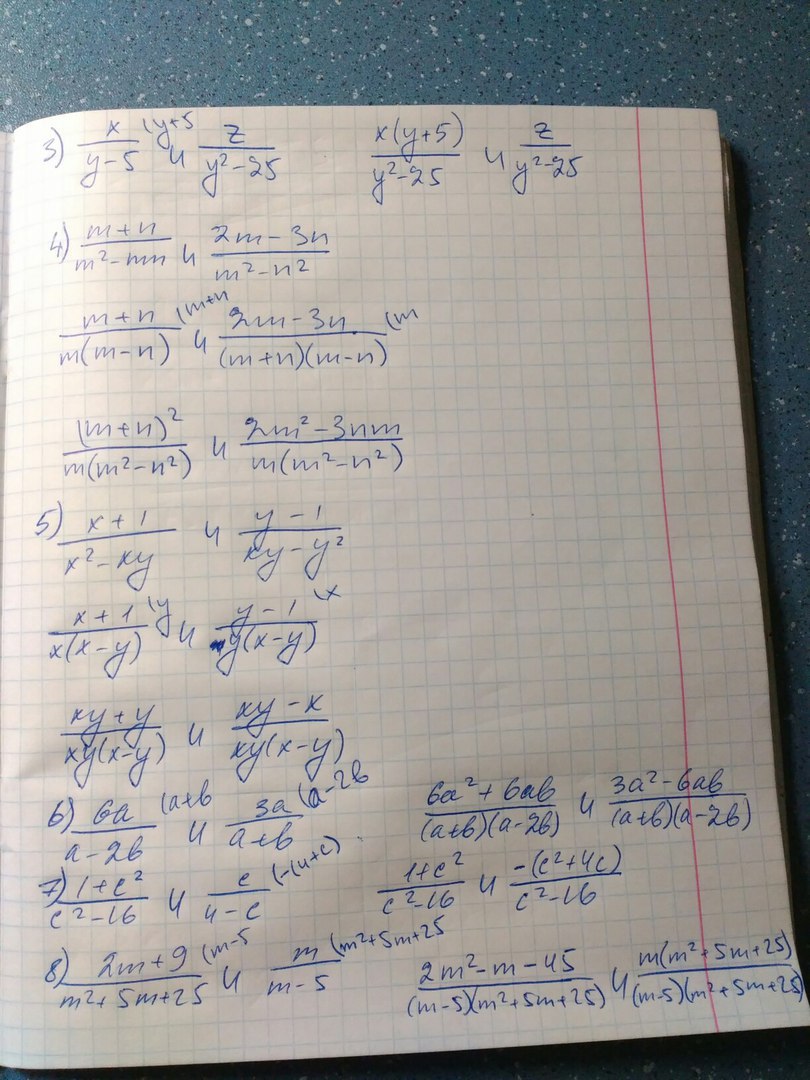 3) x/(y-5) (y+5 и z/(y²-25) x(y+5)/(y²-25) и z/(y²-25)
4) (m+n)/(m²-mn) и (2m-3n)/(m²-n²)
(m+n)/(m(m-n)) (m+n и (2m-3n)/((m+n)(m-n)) (m
(m+n)²/(m(m²-n²)) и (2m²-3nm)/(m(m²-n²))
5) (x+1)/(x²-xy) и (y-1)/(xy-y²)
(x+1)/(x(x-y)) (y и (y-1)/(y(x-y)) (x
(xy+y)/(xy(x-y)) и (xy-x)/(xy(x-y))
6) 6a/(a-2b) (a+b и 3a/(a+b) (a-2b (6a²+6ab)/((a+b)(a-2b)) и (3a²-6ab)/((a+b)(a-2b))
7) (1+c²)/(c²-16) и c/(4-c) (-(4+c) (1+c²)/(c²-16) и -(c²+4c)/(c²-16)
8) (2m+9)/(m²+5m+25) (m-5 и m/(m-5) (m²+5m+25 (2m²-m-45)/((m-5)(m²+5m+25)) и m(m²+5m+25)/((m-5)(m²+5m+25))